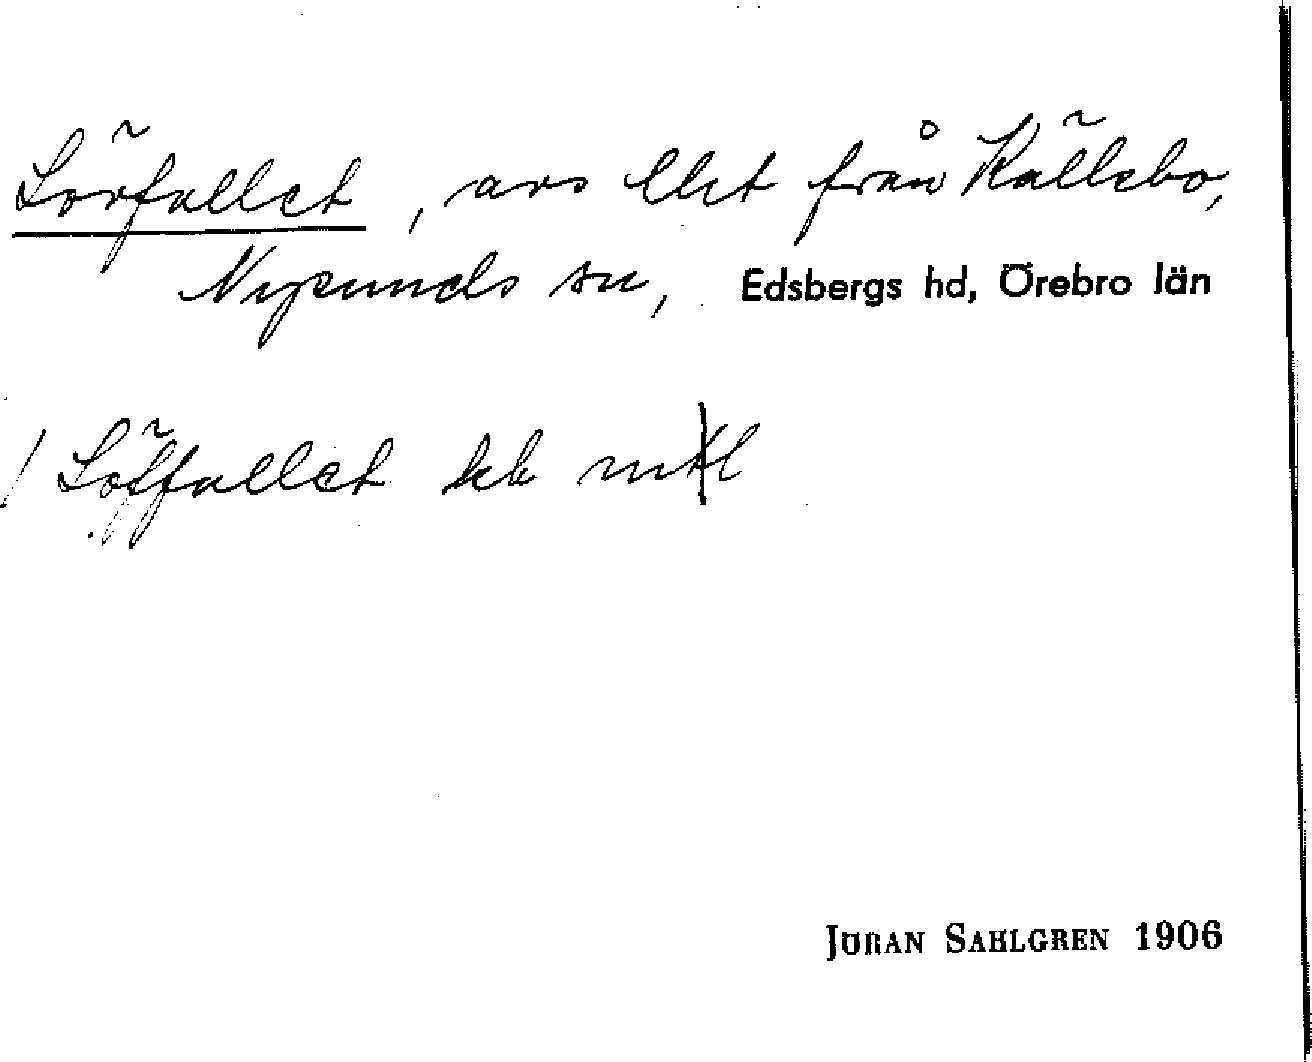 Lövfallet, avs llit från Källebo,
Nysunds sn, Edsbergs hd, Örebro län
Löffallet kk mtl
JÖRAN SAHLGREN 1906